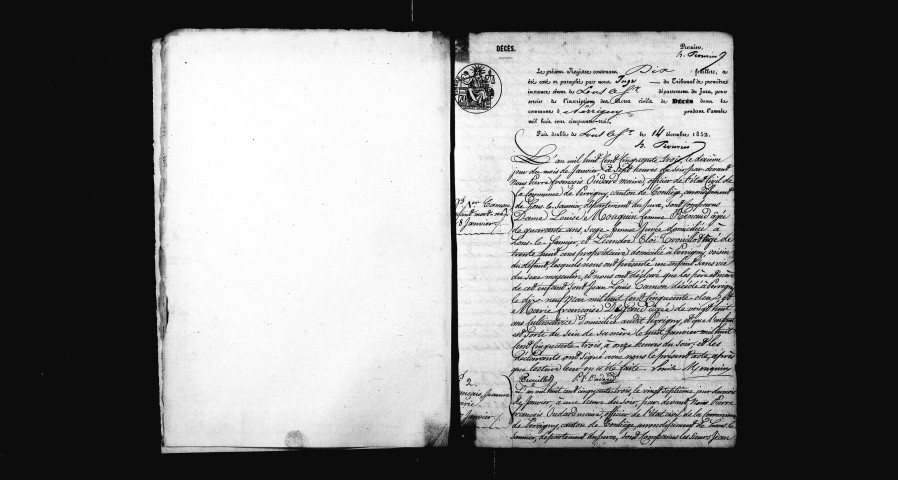 DÉCÈS.
Premier,
Le présent Registre contenant Dix feuillets, a
été coté et paraphé par nous Juge du Tribunal de première
instance séant de Lons le Sr département du Jura, pour
servir de l'inscription des Actes civils de DÉCÈS dans la
commune de Perrigny pendant l'année
mil huit cent cinquante-trois.
Fait double de Lons le Sr le 14 décembre 1852.
L'an mil huit cent cinquante trois, le dixième
jour du mois de Janvier à sept heures du soir, par devant
Nous Pierre françois Oudard maire, officier de l'état civil de
la commune de Perrigny, canton de Conliège, arrondissement
de Lons-le-Saunier, département du Jura, sont comparus
Dame Louise Monguin femme Renaud âgée
de quarante ans, sage femme jurée domiciliée à
Lons-le-Saunier, et Léandre Eloi Trouillot âgé de
trente huit ans propriétaire domicilié à Perrigny, voisin
du défunt, lesquels nous ont présenté un enfant sans vie
du sexe masculin, et nous ont déclaré que les père et mère
de cet enfant sont Jean Louis Camon décédé à Perrigny
le dix neuf mai mil huit cent cinquante deux, et
Marie françoise âgée de vingt huit
ans cultivatrice domiciliée audit Perrigny, et que l'enfant
est sorti du sein de sa mère le huit Janvier mil huit
cent cinquante-trois, à onze heures du soir, et les
déclarants ont signé avec nous le présent acte, après
que lecture leur en a été faite. Louise Monguin
Trouillot P. f. Oudard
N° 1er Camon
enfant mort-né
8 Janvier
N° 2
françois
Janvier
L'an mil huit cent cinquante trois, le vingt septième jour du mois
de Janvier, à une heure du soir, par devant Nous Pierre
françois Oudard maire, officier de l'état civil de la commune
de Perrigny, canton de Conliège, arrondissement de Lons-le-
Saunier, département du Jura, sont comparus les sieurs Jean